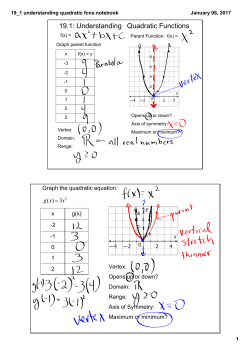 19_1 understanding quadratic fcns.notebook
January 06, 2017
19.1: Understanding Quadratic Functions
f(x) = ax² + bx + c
Parent Function: f(x) = x²
Graph parent function
x f(x) = y
-3 9
-2 4
-1 1
0 0
1 1
2 4
3 9
Parabola
vertex
Opens up or down?
Axis of symmetry: x=0
Maximum or minimum?
Vertex: (0,0)
Domain: ℝ ← all real numbers
Range: y ≥ 0
Graph the quadratic equation.
g(x) = 3x²
f(x) = x²
x g(x)
-2 12
-1 3
0 0
1 3
2 12
parent
vertical
stretch
thinner
g(-2) = 3(-2)² = 3(4)
g(-1) = 3(-1)²
Vertex: (0,0)
Opens up or down?
Domain: ℝ
Range: y ≥ 0
Axis of Symmetry: x=0
vertex Maximum or minimum?
1